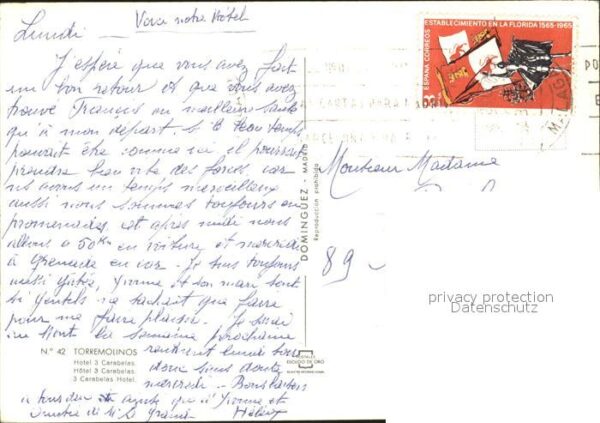 Lundi — Voici notre Hôtel
J'espère que vous avez fait
un bon retour et que vous avez
trouvé Francis en meilleure santé
qu'à mon départ. Si le temps
pouvait être comme ici il pourrait
prendre bien vite des forces, car
nous avons un temps merveilleux
aussi nous sommes toujours en
promenades, cet après midi nous
allons à 50 Km en voiture et mercredi
à Grenade en car. Je suis toujours
aussi gâtée, Yvonne et son mari sont
si gentils ne sachant que faire
pour me faire plaisir. Je
la semaine prochaine
rentrent lundi soir
donc sans doute
mercredi - Bons baisers
à tous deux et ainsi que d'Yvonne et
Hélène
Nº 42 TORREMOLINOS
Hotel 3 Carabelas.
Hôtel 3 Carabelas.
3 Carabelas Hotel.
DOMINGUEZ - MADRID
Reproduction prohibida
POSTALES
ESCUDO DE ORO
ESTABLECIMIENTO EN LA FLORIDA 1565-1965
ESPAÑA CORREOS
Monsieur Madame
89
privacy protection
Datenschutz